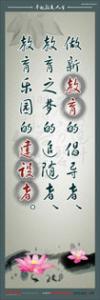 做新教育的倡导者、
教育之梦的追随者、
教育乐园的建设者。